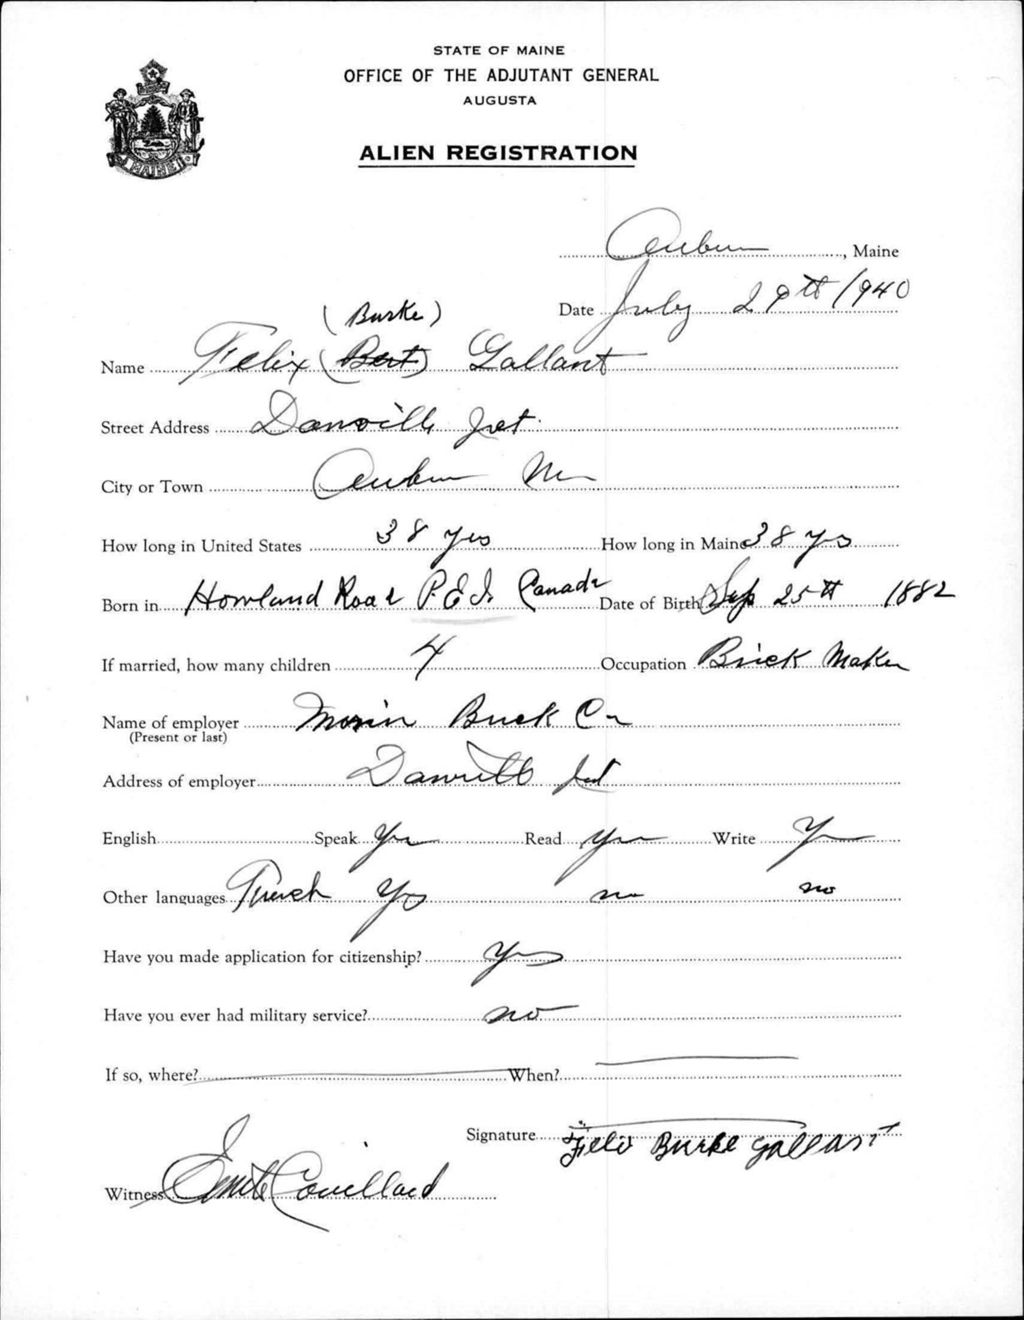 STATE OF MAINE
OFFICE OF THE ADJUTANT GENERAL
AUGUSTA
ALIEN REGISTRATION
MAINE
Auburn, Maine
Date July 29th 1940
(Burke)
Name Felix (Bert) Gallant
Street Address Danville Jct.
City or Town Auburn Me
How long in United States 38 yrs How long in Maine 38 yrs
Born in Howland Road P.E.I. Canada Date of Birth Sep 25th 1882
If married, how many children 4 Occupation Brick Maker
Name of employer Morin Brick Co
(Present or last)
Address of employer Danville Jct
English Speak Yes Read Yes Write Yes
Other languages French Yes no no
Have you made application for citizenship? Yes
Have you ever had military service? no
If so, where? When?
Signature Felix Burke Gallant
Witness Emile Couillard